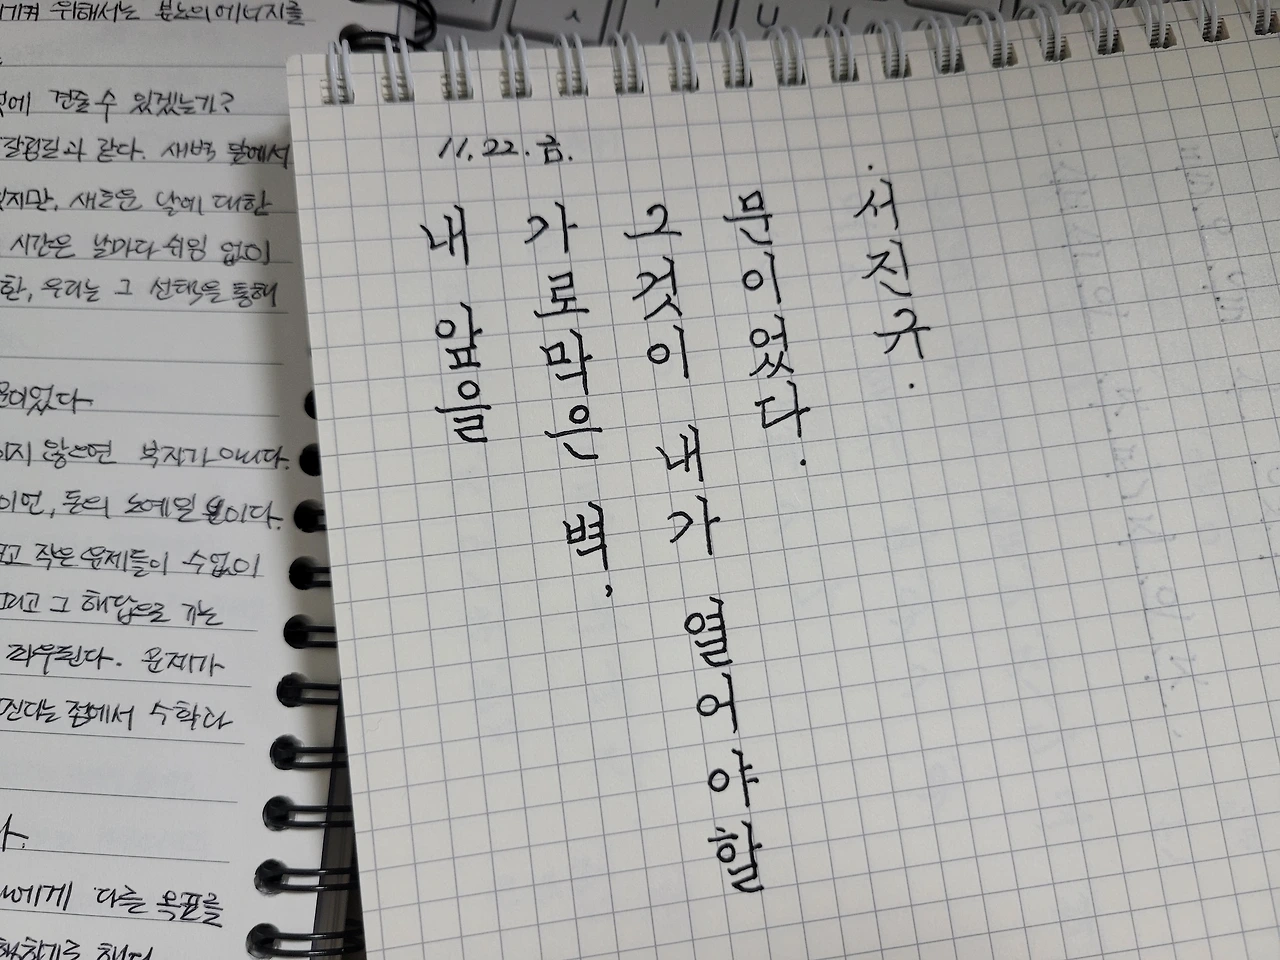 위해서는 분노의 에너지를
견줄 수 있겠는가?
갈림길과 같다. 새벽 달에서
있지만, 새로운 날에 대한
시간은 날마다 쉬임 없이
한, 우리는 그 선택을 통해
문이었다
않으면 부자가 아니다.
돈의 노예일 뿐이다.
작은 문제들이 수없이
그리고 그 해답으로 가는
좌우된다. 문제가
점에서 수학과
에게 다른 목표를
11.22.금.
내 앞을
가로막은 벽,
그것이 내가 열어야할
문이었다.
. 서진규.